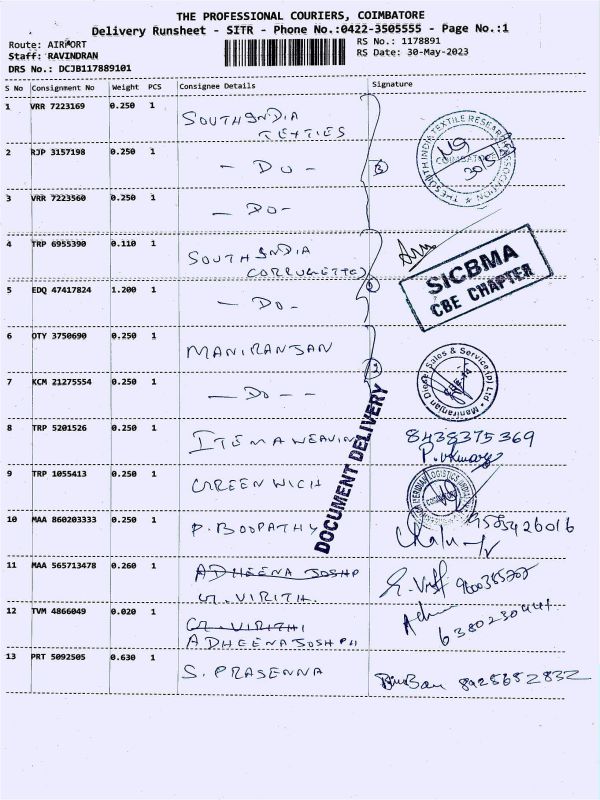 THE PROFESSIONAL COURIERS, COIMBATORE
Delivery Runsheet - SITR - Phone No.:0422-3505555 - Page No.:1
Route: AIRPORT
Staff: RAVINDRAN
DRS No.: DCJB117889101
RS No.: 1178891
RS Date: 30-May-2023
S No Consignment No Weight PCS Consignee Details Signature
1 VRR 7223169 0.250 1 SOUTH INDIA
TEXTIES
THE SOUTH INDIA TEXTILE RESEARCH ASSOCIATION
COIMBATORE
2 RJP 3157198 0.250 1 - DO - 3
3 VRR 7223560 0.250 1 - DO -
4 TRP 6955390 0.110 1 SOUTH INDIA
CORRUGETTED
SICBMA
CBE CHAPTER
5 EDQ 47417824 1.200 1 - DO -
6 OTY 3750690 0.250 1 MANIRANJAN
Maniranjan Diesel Sales & Service (P) Ltd
7 KCM 21275554 0.250 1 - DO - -
DOCUMENT DELIVERY
8 TRP 5201526 0.250 1 ITEMA WEAVIN 8438375369
9 TRP 1055413 0.250 1 GREEN WICH
MERIDIAN LOGISTICS INDIA
10 MAA 860203333 0.250 1 P. BOOPATHY 9585426016
11 MAA 565713478 0.260 1 ADHEENA JOSHP
G. VIRITH.
12 TVM 4866049 0.020 1 G. VIRITHI
ADHEENA JOSHPH
6380230441
13 PRT 5092505 0.630 1 S. PRASENNA 8925652832